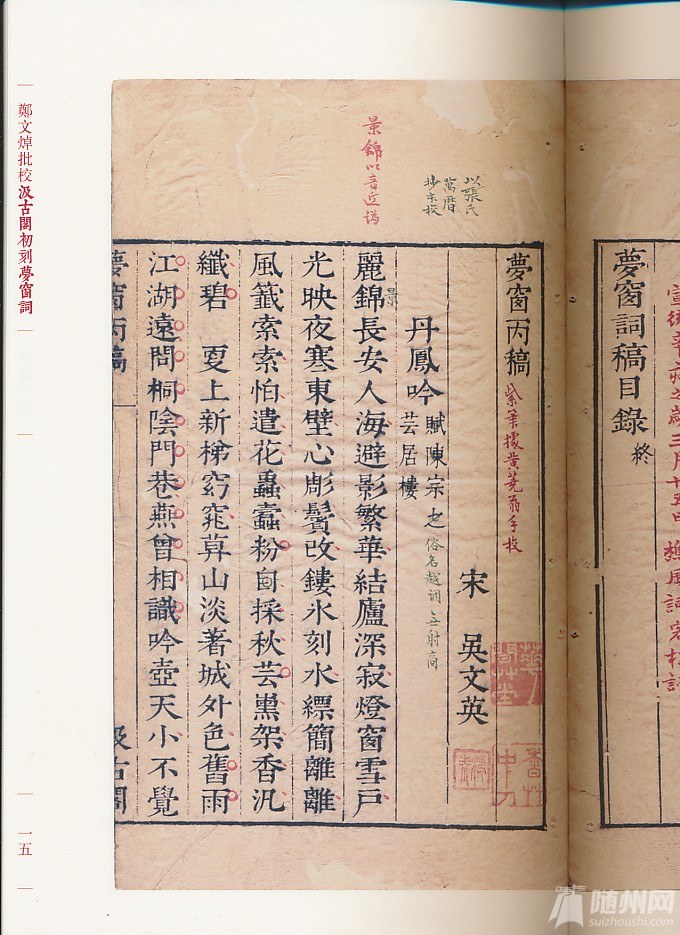 夢窗詞稿目錄 終
夢窗丙稿 紫筆據黃蕘翁手校
宋 吳文英
丹鳳吟 賦陳宗之芸居樓 俗名越調無射商
麗錦長安人海避影繁華結廬深寂燈窗雪戶
景
光映夜寒東壁心彫鬢改鏤氷刻水縹簡離離
風籤索索怕遣花蟲蠹粉自採秋芸熏架香汎
纖碧 更上新梯窈窕莫山淡著城外色舊雨
江湖遠問桐陰門巷燕曾相識吟壺天小不覺
夢窗丙稿 一 汲古閣
以張氏
萬曆
抄本校
景錦以音近譌
鄭文焯批校汲古閣初刻夢窗詞
一五
随州网
suizhou.cn